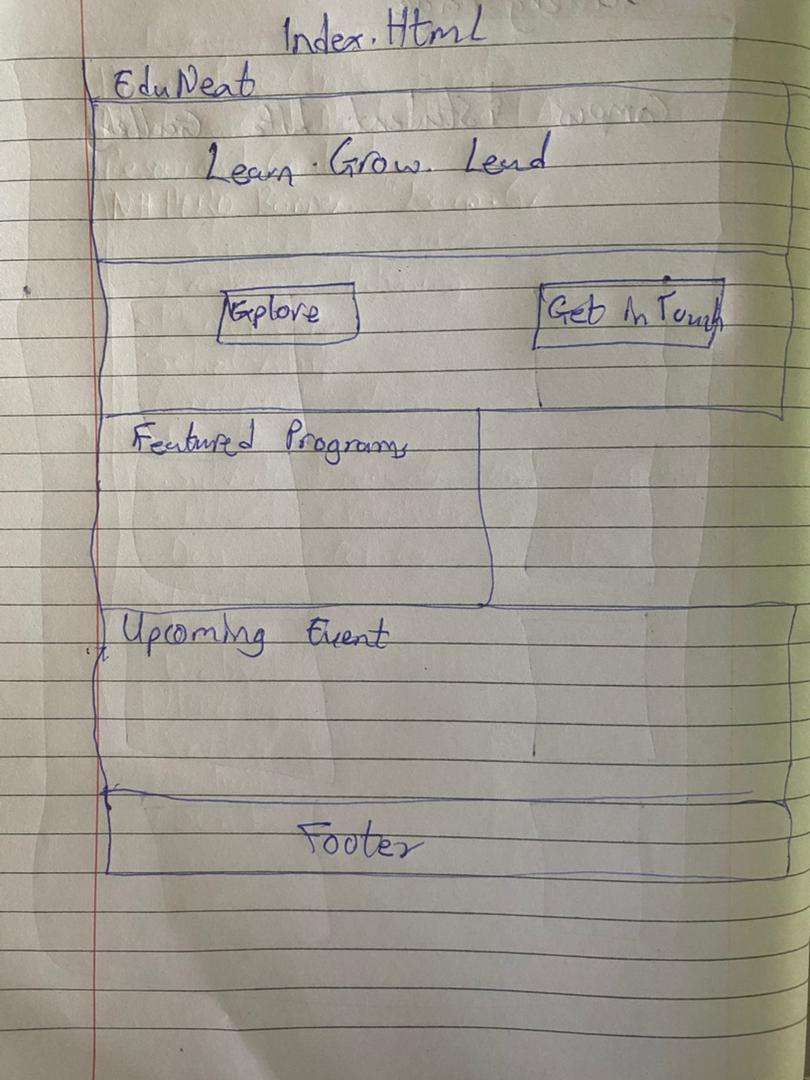 Index.Html
EduNeat
Learn. Grow. Lead
Explore
Get In Touch
Featured Programs
Upcoming Event
Footer